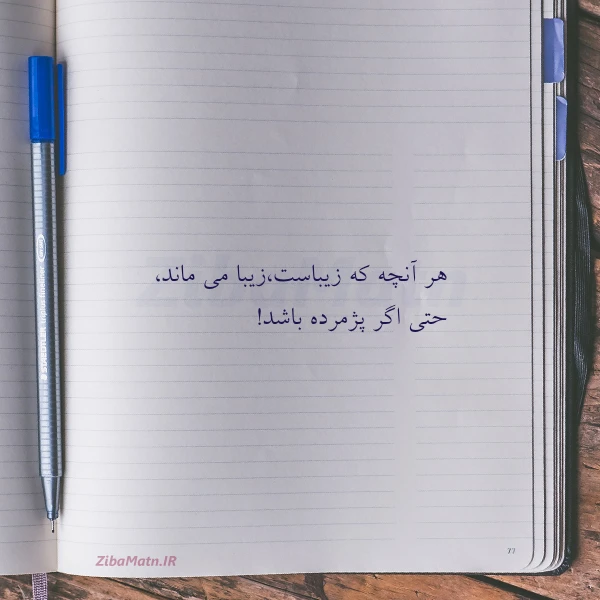 هر آنچه که زیباست،زیبا می ماند،
حتی اگر پژمرده باشد!
ZibaMatn.IR